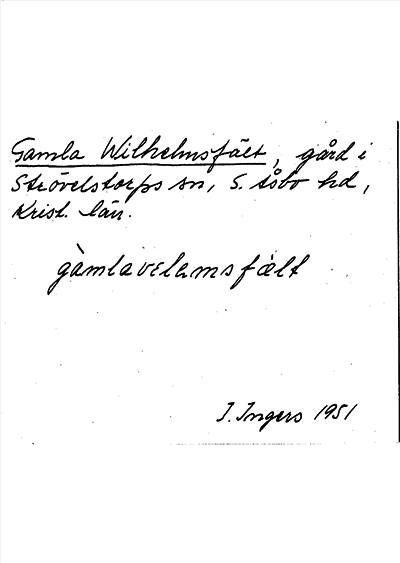 Gamla Wilhelmsfält, gård i
Strövelstorps sn, S. Åsbo hd,
Krist. län.
gàmlavɛlamsfàlt
I. Ingers 1951